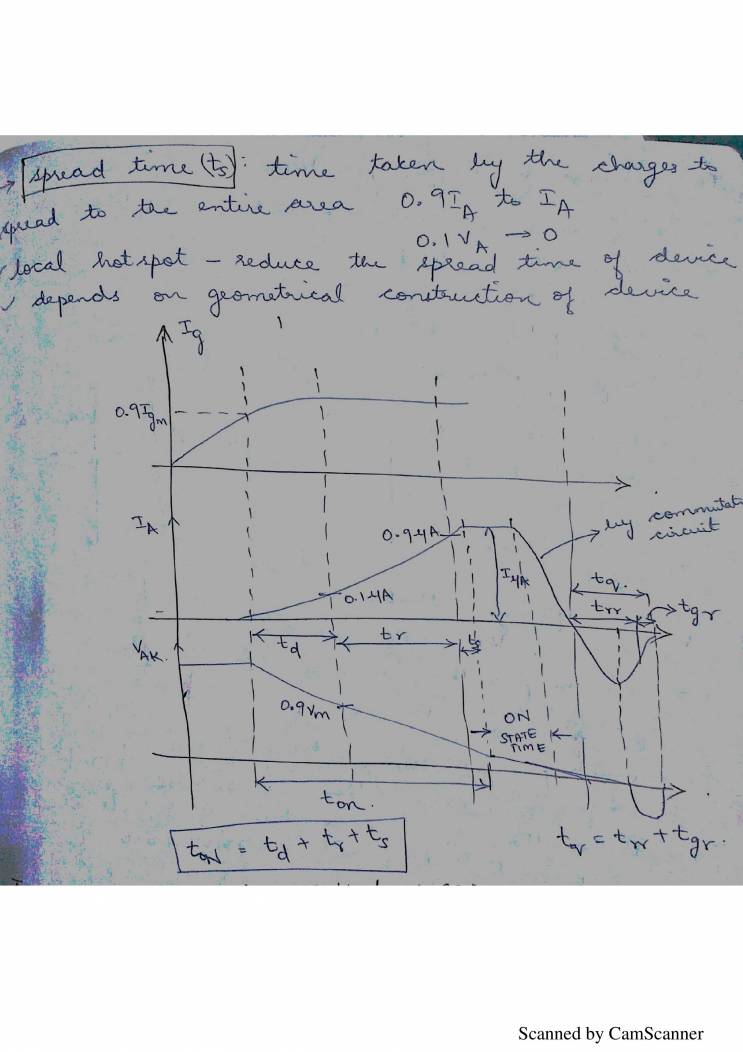 spread time (ts): time taken by the charges to
spread to the entire area 0.9IA to IA
0.1VA → 0
local hotspot - reduce the spread time of device
✓ depends on geometrical construction of device
Ig
0.9Igm
IA
0.9IA
by commutat
circuit
IA
tq.
trr
tgr
0.1IA
td
tr
ts
VAK.
0.9Vm
ON
STATE
TIME
ton.
tON = td + tr + ts
tq = trr + tgr.
Scanned by CamScanner